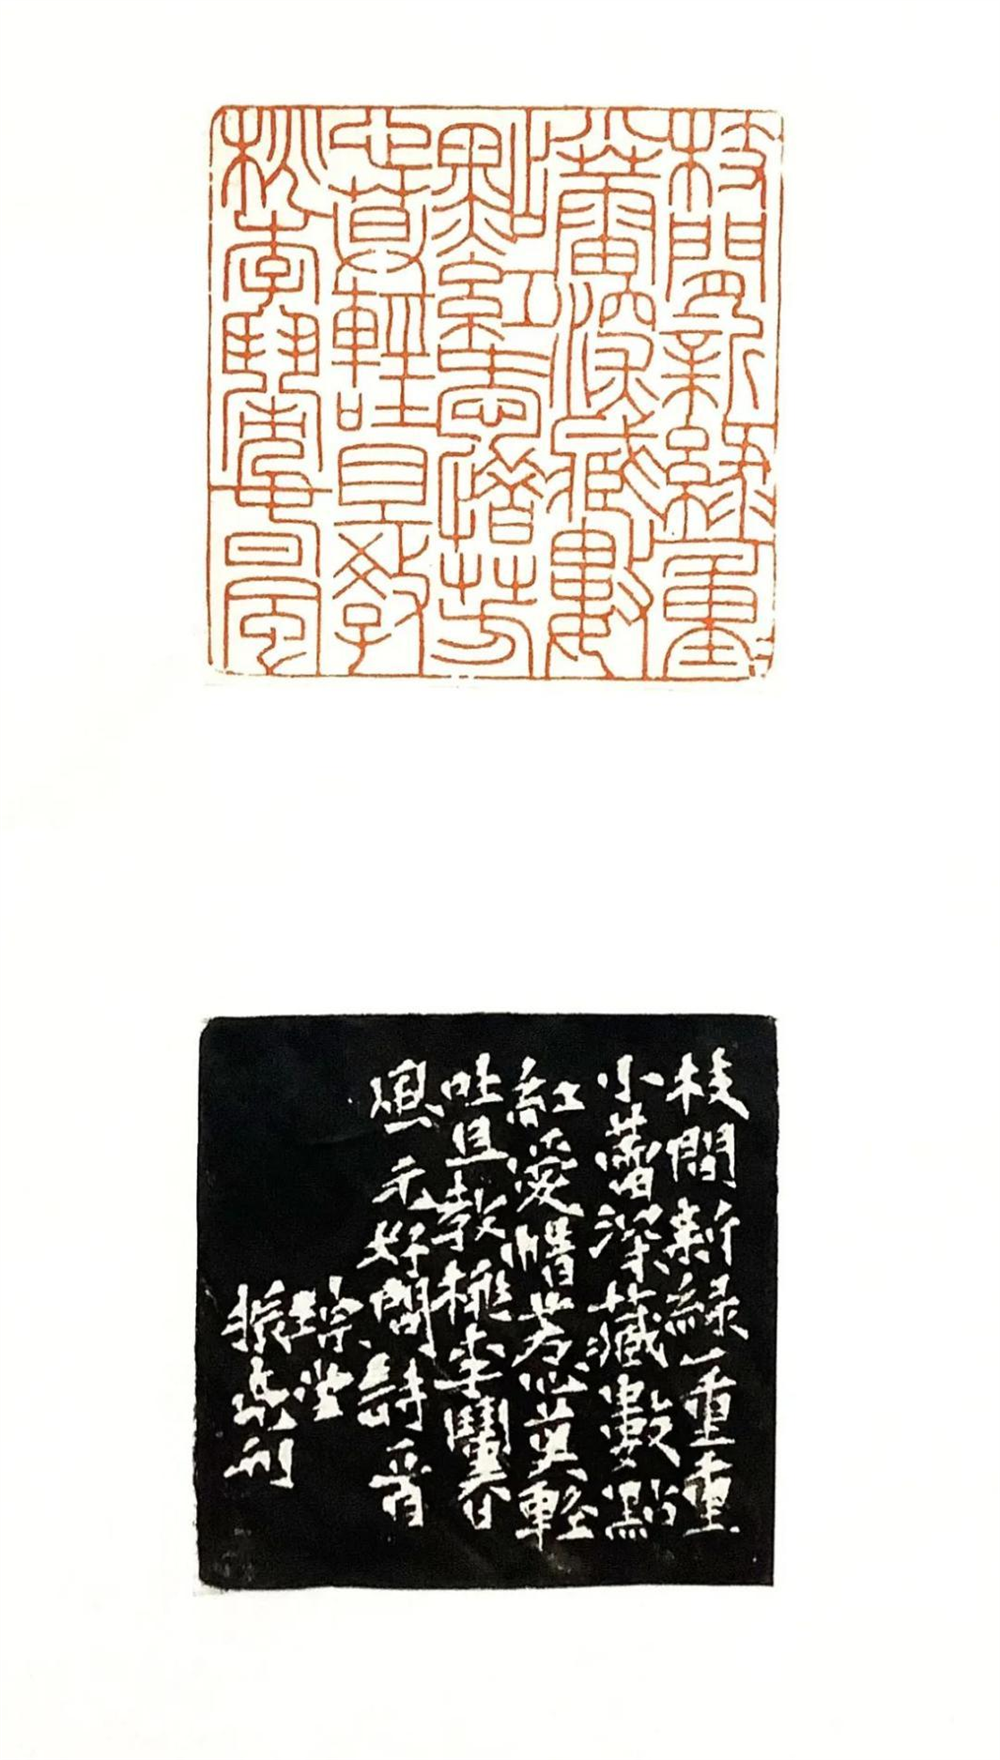 枝間新綠一重〻
小蕾深藏數
點紅愛惜芳
心莫輕吐且教
桃李鬧春風
枝間新綠一重重
小蕾深藏數點
紅愛惜芳心莫輕
吐且教桃李鬧春
風元好問詩
琮堂
振刊